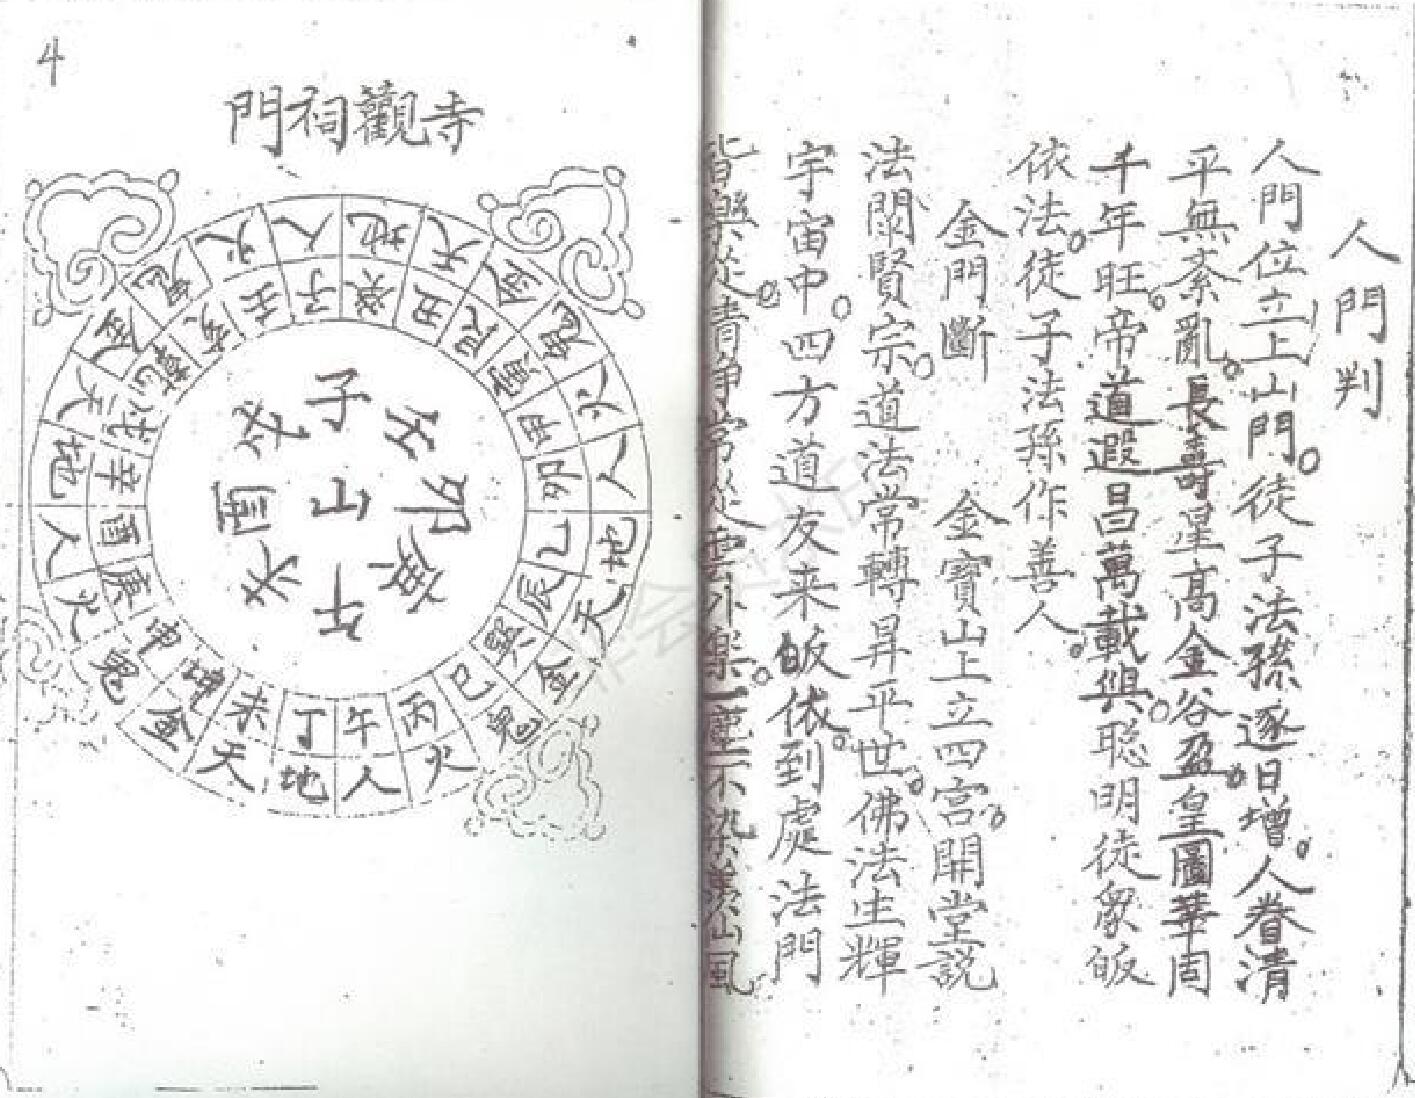 人門判
人門位立上山門。徒子法孫逐日增。人眷清
平無紊亂。長壽星高金谷盈。皇圖華固
千年旺。帝道遐昌萬載興。聰明徒眾皈
依法。徒子法孫作善人。
金門斷　金寶山上立四宮。開堂說
法闡賢宗。道法常轉昇平世。佛法生輝
宇宙中。四方道友来皈依。到處法門
皆樂從。清淨常從雲外樂。一塵不染羨山風
4
門祠觀寺
鬼火人地天金鬼火人地天金鬼火人地天金鬼火人地天金
亥壬子癸丑艮寅甲卯乙辰巽巳丙午丁未坤申庚酉辛戌乾
子
山
卯
午
未
酉